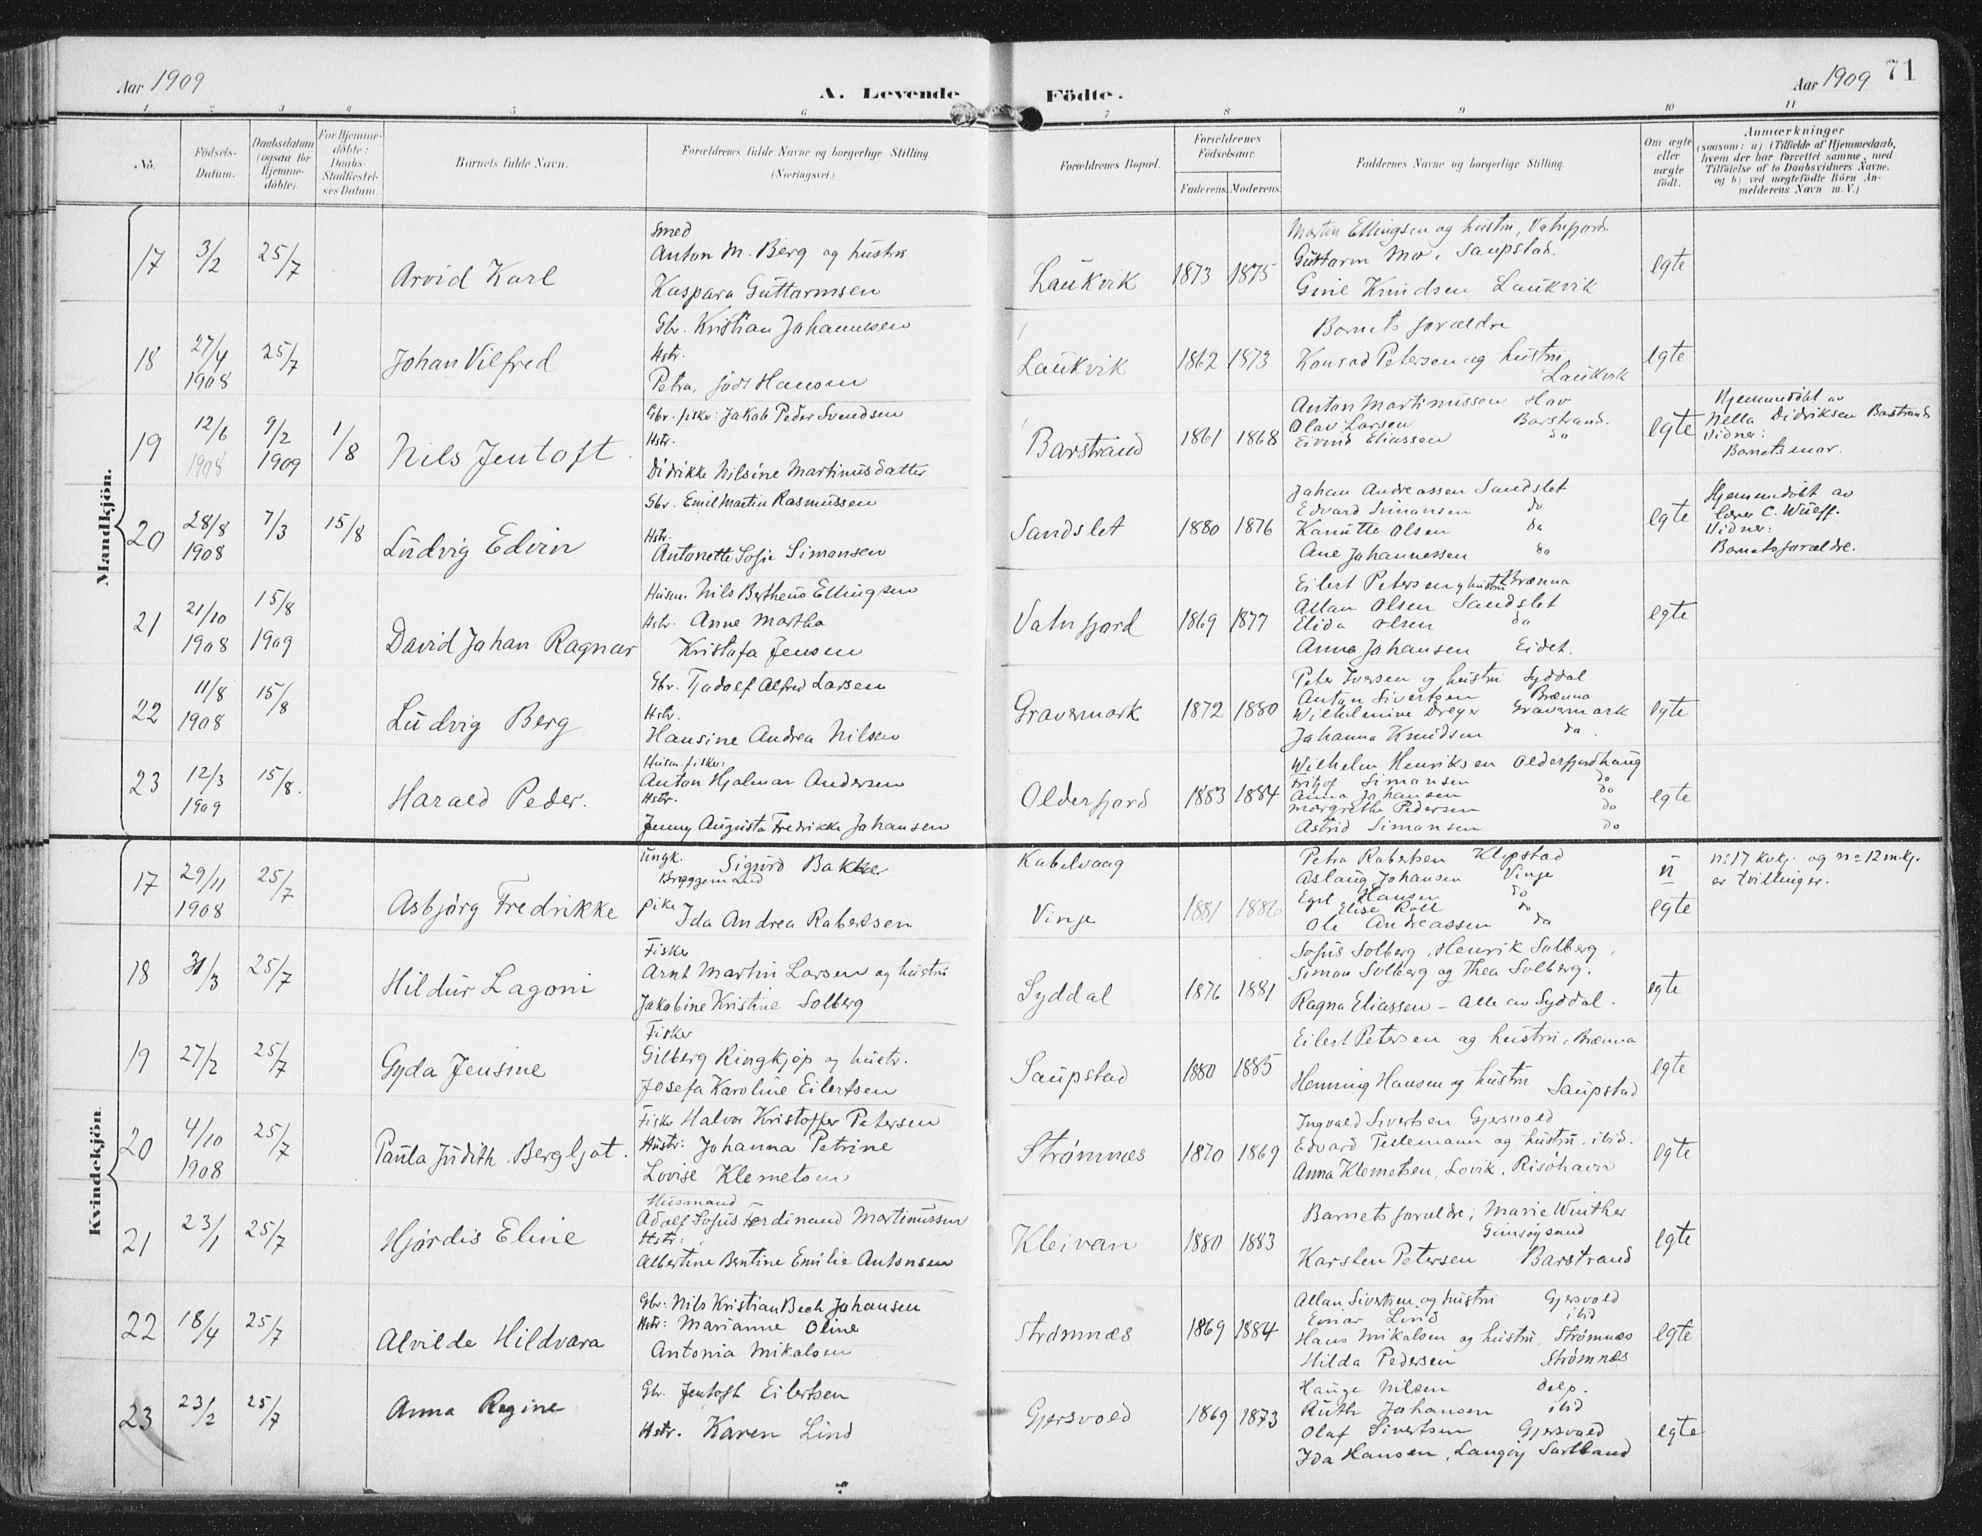 Aar 1909
A. Levende Födte.
Aar 1909 71
1 2 3 4 5 6 7 8 9 10 11
No.
Födsels-Datum.
Daabsdatum (ogsaa for Hjemmedöbte).
For Hjemmedöbte: Daabs-Stadfæstelses Datum.
Barnets fulde Navn.
Forældrenes fulde Navne og borgerlige Stilling. (Næringsvei.)
Forældrenes Bopæl.
Forældrenes Födselsaar.
Faderens. Moderens.
Faddernes Navne og borgerlige Stilling.
Om ægte eller uægte födt.
Anmærkninger
(saasom: a) i Tilfælde af Hjemmedaab, hvem der har forrettet samme, med Tilföielse af to Daabsvidners Navne, og b) ved uægtefödte Börn Anmelderens Navn m. V.)
Mandkjön.
17 3/2 25/7 Arvid Karl
Smed
Anton M. Berg og hustru
Kaspara Guttormsen
Laukvik 1873 1875
Martin Ellingsen og hustru, Vatnfjord
Guttorm Mo, Saupstad.
Gine Knudsen Laukvik
egte
18 27/4 1908 25/7 Johan Vilfred
Gbr. Kristian Johannesen
Hstr.
Petra, född Hansen
Laukvik 1862 1873
Barnets forældre
Konrad Petersen og hustru
Laukvik
egte
19 12/6 1908 9/2 1909 1/8 Nils Jentoft
Gbr. fisker: Jakob Peder Svendsen
Hstr.
Didrikke Nilsine Martinusdatter
Barstrand 1861 1868
Anton Martinussen Hov
Olav Larsen Barstrand.
Eivind Eliassen do
egte
Hjemmedöbt av
Nella Didriksen Barstrand
Vidner:
Barnets mor.
20 28/8 1908 7/3 15/8 Ludvig Edvin
Gbr. Emil Martin Rasmussen
Hstr.
Antonette Sofie Simonsen
Sandslet 1880 1876
Johan Andreassen Sandslet
Edvard Simonsen do
Kanutte Olsen do
Ane Johannessen do
egte
Hjemmedöbt av
lærer C. Wulff.
Vidner:
Barnets forældre.
21 21/10 1908 15/8 1909 David Johan Ragnar
Husm. Nils Bertheus Ellingsen
Hstr. Anne Martha
Kristofa Jensen
Vatnfjord 1869 1877
Eilert Petersen og hustru Brænna
Allan Olsen Sandslet
Elida Olsen do
Anna Johansen Eidet.
egte
22 11/8 1908 15/8 Ludvig Berg
Gbr. Tjodolf Alfred Larsen
Hstr.
Hansine Andrea Nilsen
Gravermark 1872 1880
Peter Iversen og hustru Syddal
Anton Sivertsen Brænna
Wilhelmine Dreyer Gravermark
Johanna Knudsen do.
egte
23 12/3 1909 15/8. Harald Peder.
Husm. fisker:
Anton Hjalmar Andersen
Hstr.
Jenny Augusta Fredrikke Johansen
Olderfjord 1883 1884
Wilhelm Henriksen Olderfjordhaug
Fritjof Simonsen do
Anna Johansen do
Margrethe Pedersen do
Astrid Simonsen do
egte
Kvindekjön.
17 29/11 1908 25/7 Asbjörg Fredrikke
Ungk. Sigurd Bakke
Bryggemand
pike Ida Andrea Robertsen
Kabelvaag
Vinje 1881 1886
Petra Robertsen Klepstad
Aslaug Johansen Vinje
Egil Hansen do
Elise Röll do
Ole Andreassen do
u
egte
No 17 kvkj. og No 12 m.kj.
er tvillinger.
18 31/3 25/7 Hildur Lagoni
Fisker
Arnt Martin Larsen og hustru
Jakobine Kristine Solberg
Syddal 1876 1881
Sofus Solberg, Henrik Solberg,
Simon Solberg og Thea Solberg.
Ragna Eliassen – alle av Syddal.
egte
19 27/2 25/7 Gyda Jensine
Fisker
Gilberg Ringkjøp og hustr.
Josefa Karoline Eilertsen
Saupstad 1880 1885
Eilert Petersen og hustru, Brænna
Henning Hansen og hustru Saupstad
egte
20 4/10 1908 25/7 Paula Judith Bergljot.
Fisker Halvor Kristoffer Petersen
Hustr: Johanna Petrine
Lovise Klemetsen
Strømnæs 1870 1869
Ingvald Sivertsen Gjersvold
Edvard Tellemann og hustru, ibid.
Anna Klemetsen, Lovik, Risöhavn
egte
21 23/1 25/7 Hjördis Eline
Husmand
Adolf Sofus Ferdinand Martinussen
Hstr:
Albertine Bentine Emilie Antonsen
Kleivan 1880 1883
Barnets forældre; Marie Winther
Gimsöysand
Karsten Petersen Barstrand
egte
22 18/4 25/7 Alvilde Hildvara
Gbr: Nils Kristian Bech Johansen
Hstr: Marianne Oline
Antonia Mikalsen
Strømnæs 1869 1884
Allan Sivertsen og hustru Gjersvold
Einar Lind ibid
Hans Mikalsen og hustru Strømnæs
Hilda Pedersen Strømnæs
egte
23 23/2 25/7 Anna Regine
Gbr. Jentoft Eilertsen
Hstr. Karen Lind
Gjersvold 1869 1873
Hauge Nilsen Delp.
Ruth Johansen ibid
Olaf Sivertsen Gjersvold
Ida Hansen, Langöy Sortland
egte